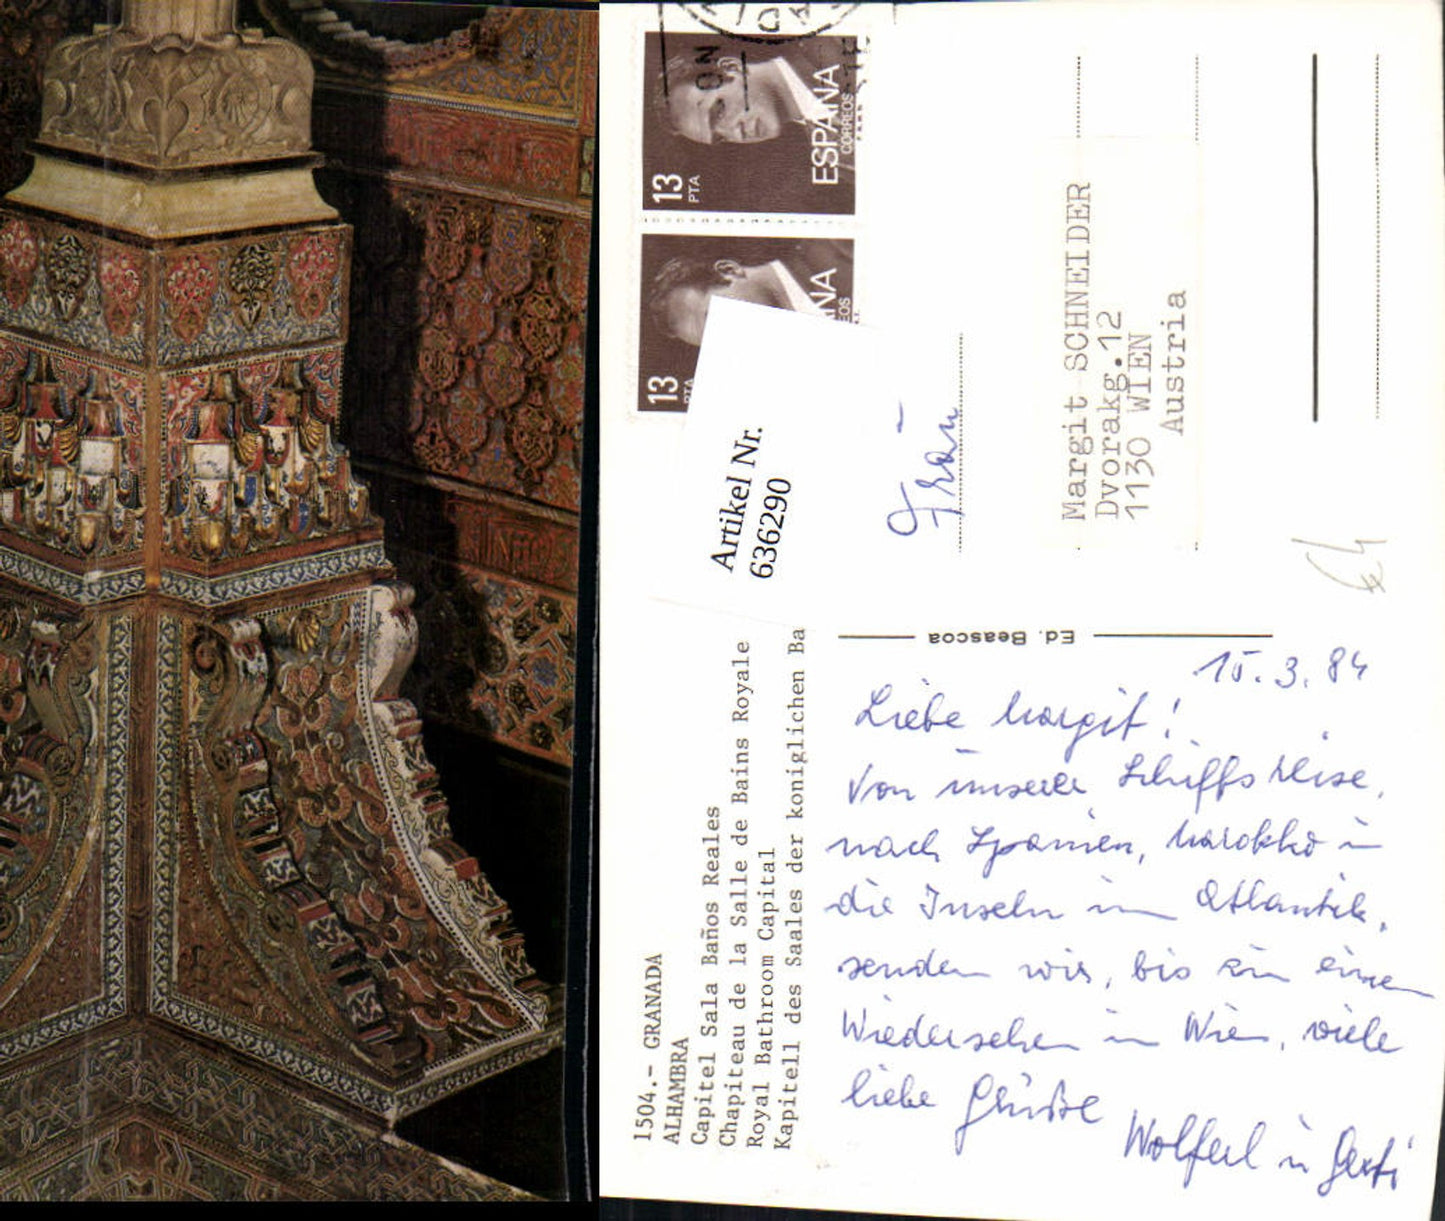 ESPAÑA
CORREOS
13
PTA
13
PTA
Artikel Nr.
636290
Frau
Margit SCHNEIDER
Dvorakg.12
1130 WIEN
Austria
1504.- GRANADA
ALHAMBRA
Capitel Sala Baños Reales
Chapiteau de la Salle de Bains Royale
Royal Bathroom Capital
Kapitell des Saales der koniglichen Ba
Ed. Beascoa
15.3.84
Liebe Margit!
Von unserer Schiffsreise,
nach Spanien, Marokko u
die Inseln im Atlantik,
senden wir, bis zu einem
Wiedersehen in Wien, viele
liebe Grüße
Wolferl u Gerti